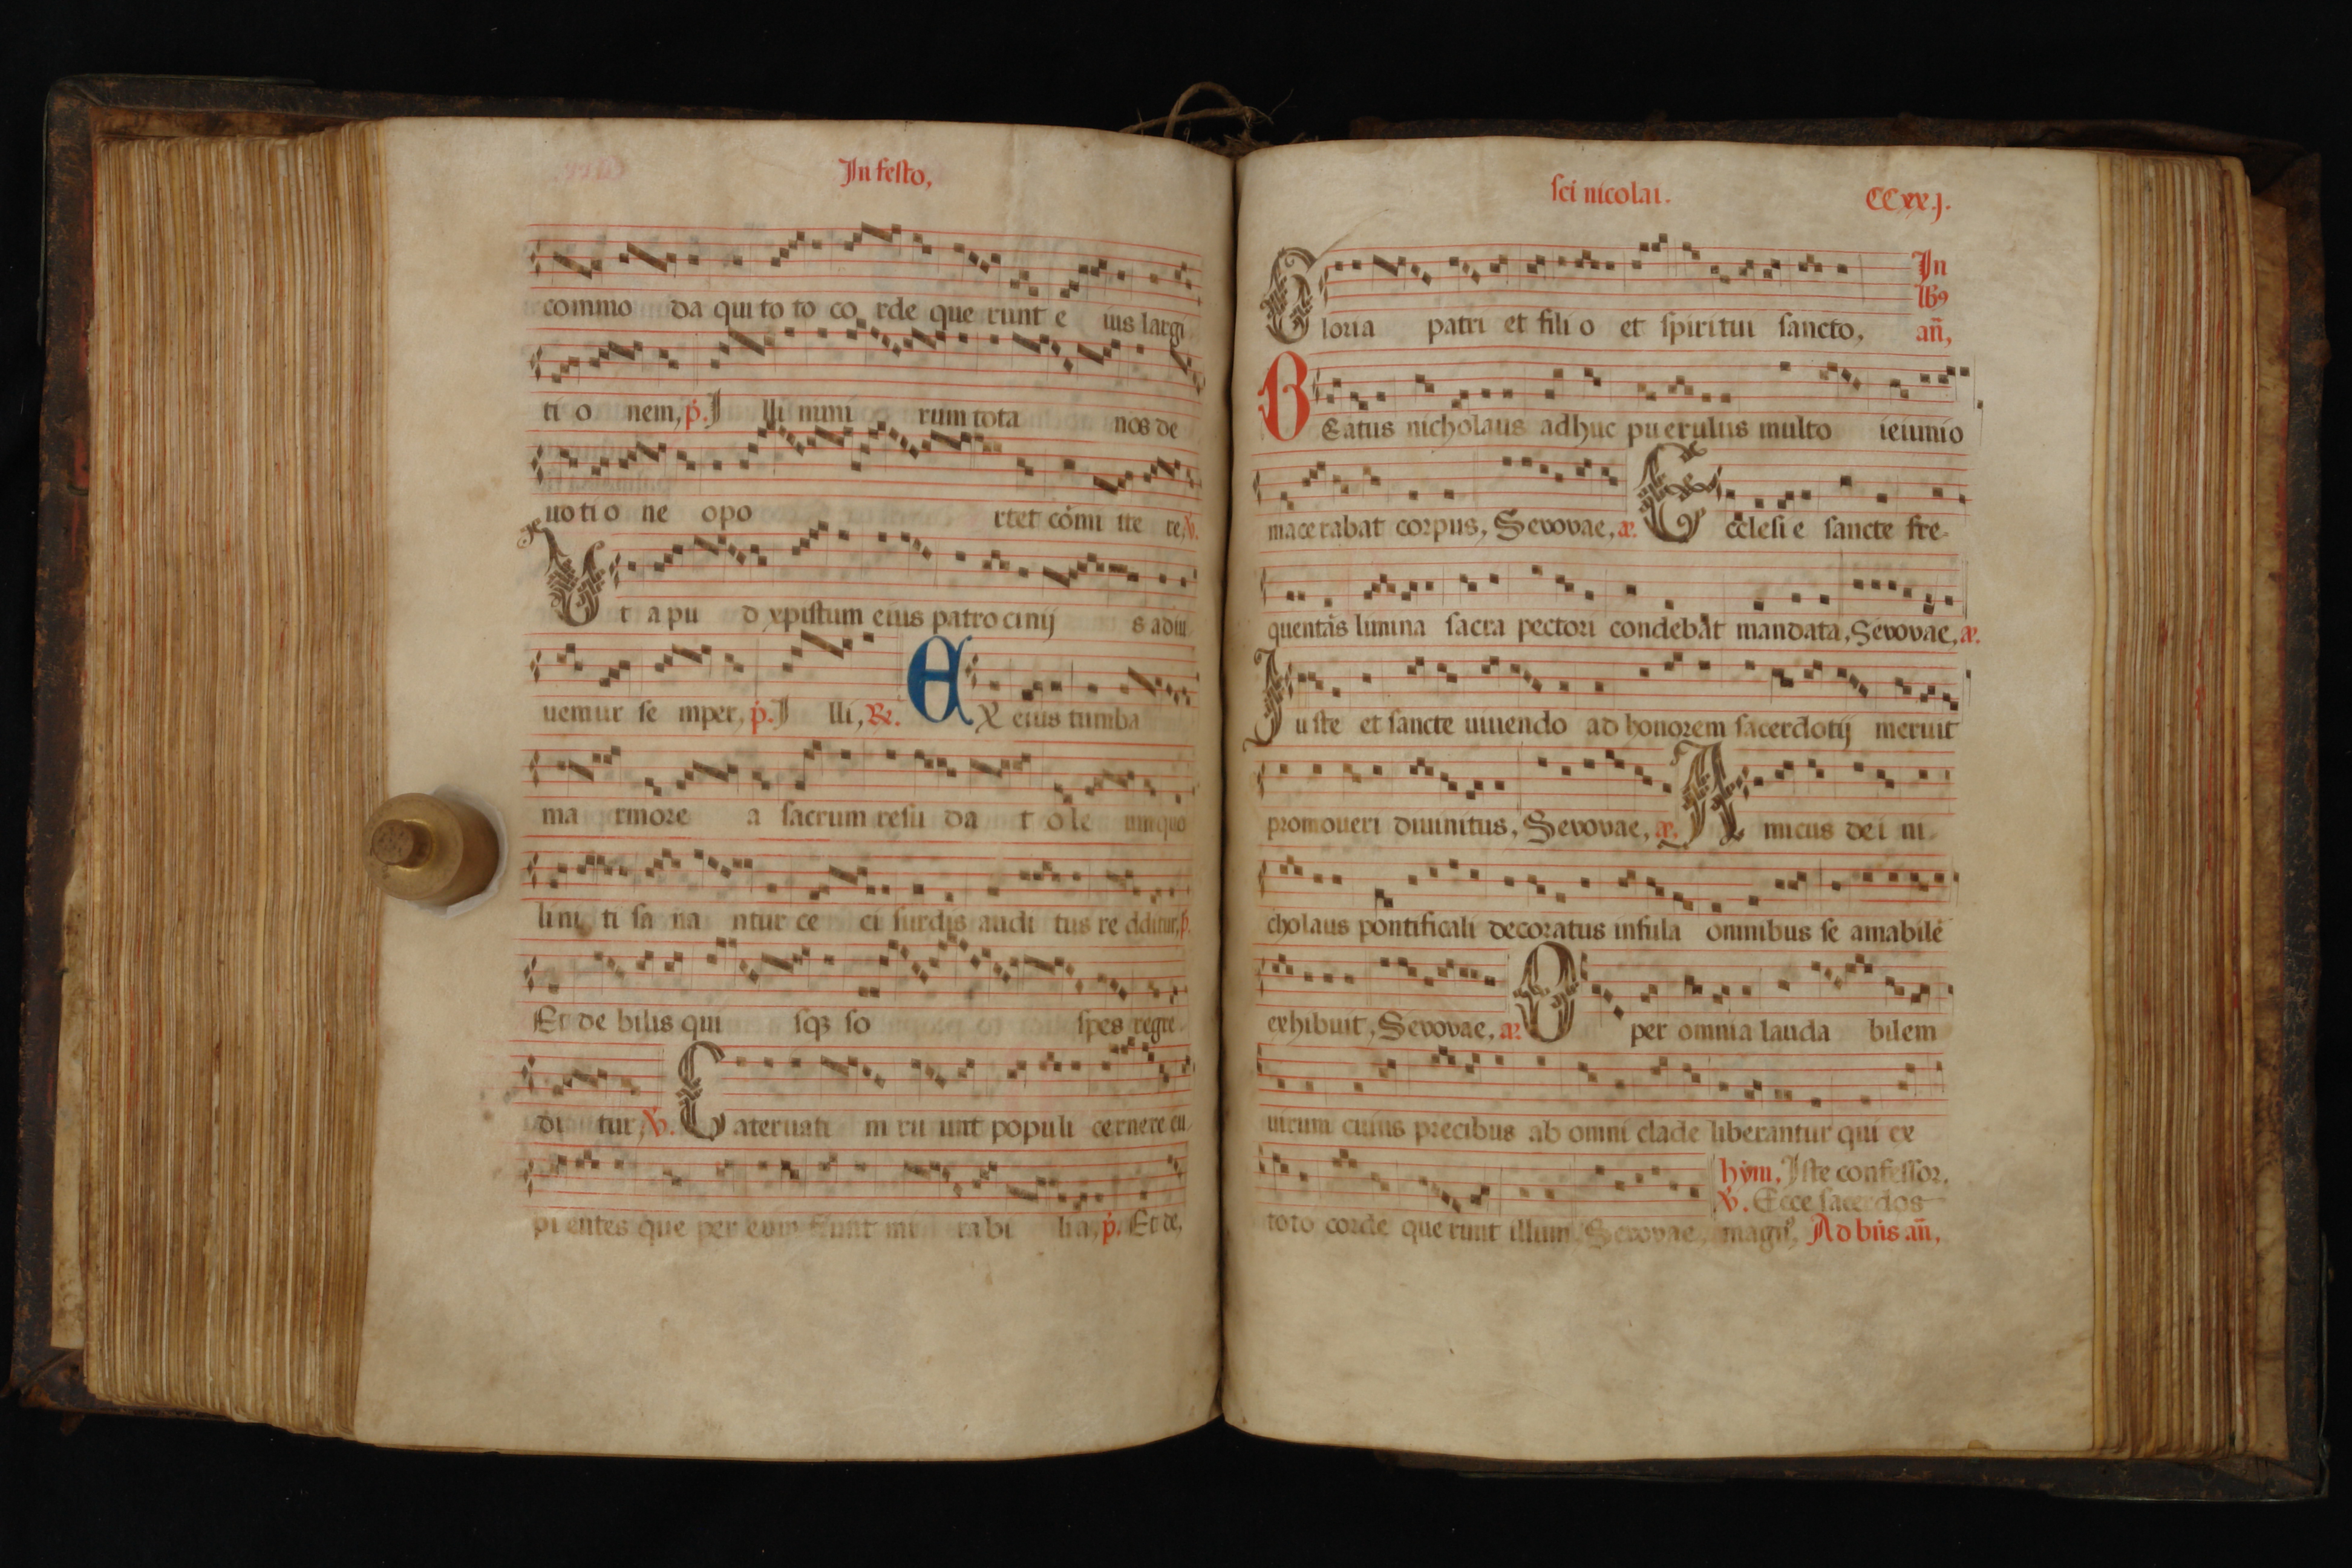 In festo,
commo da qui to to co rde que runt e ius largi
ti o nem, p. I lli mmi rum tota nos de
uo ti o ne opo rtet cómi tte re, V.
Vt apu d xpistum eius patro cinij s adiu
uemur se mper, p. I lli, Re. EX eius tumba
ma rmore a sacrum resu da t o le um quo
lini ti sa na ntur ce ci surdis audi tus re dditur, p.
Et de bilis qui sqz so spes regre
di tur, V. Cateruati m ru unt populi cernere cu
pi entes que per eum fiunt mi rabi lia, p. Et de,
sci nicolai. CCxx.j.
Gloria patri et fili o et spiritui sancto, In
lb9
añ,
BEatus nicholaus adhuc puerulus multo ieiunio
macerabat corpus, Sevovae, æ. Ecclesi e sancte fre
quentãs limina sacra pectori condebat mandata, Sevovae, æ.
Iuste et sancte uiuendo ad honorem sacerdotij meruit
promoueri diuinitus, Sevovae, æ. Amicus dei ni
cholaus pontificali decoratus infula omnibus se amabilē
exhibuit, Sevovae, æ. O per omnia lauda bilem
uirum cuius precibus ab omni clade liberantur qui ex
toto corde querunt illum, Sevovae,
hym, Iste confessor,
V. Ecce sacerdos
magn9, Ad bñs añ,